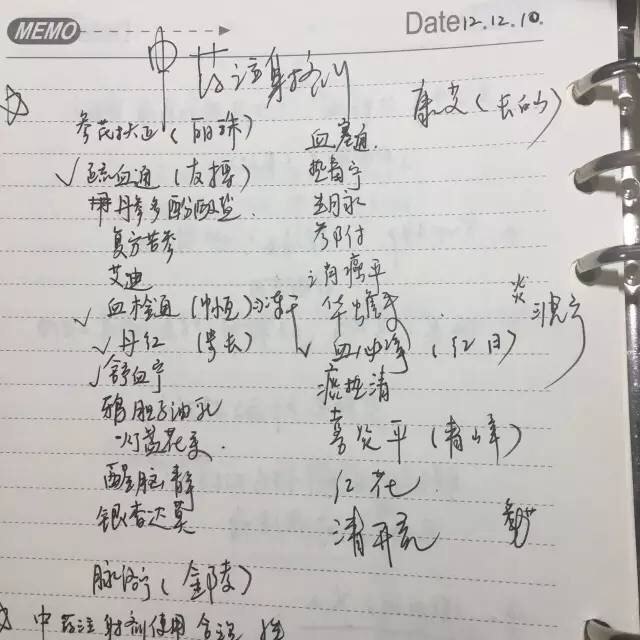 MEMO
Date 12.12.10.
中药注射剂
康艾（长白山）
参芪扶正（丽珠）
血塞通
✓疏血通（友搏）
热毒宁
丹参多酚酸盐
生脉
复方苦参
参附
艾迪
消癌平
✓血栓通（中恒）冻干
华蟾素
✓丹红（步长）
✓血必净（红日）
✓舒血宁
痰热清
鸦胆子油乳
喜炎平（青峰）
灯盏花素
红花
醒脑静
清开灵
银杏达莫
脉络宁（金陵）
中药注射剂使用合理性